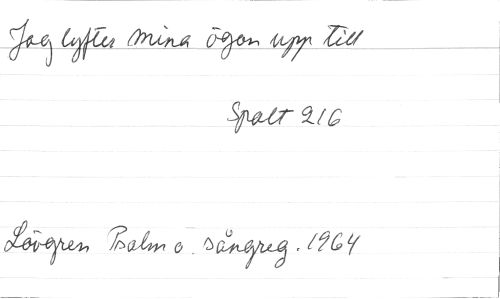 Jag lyfter mina ögon upp till
Spalt 216
Lövgren Psalm o. sångreg. 1964